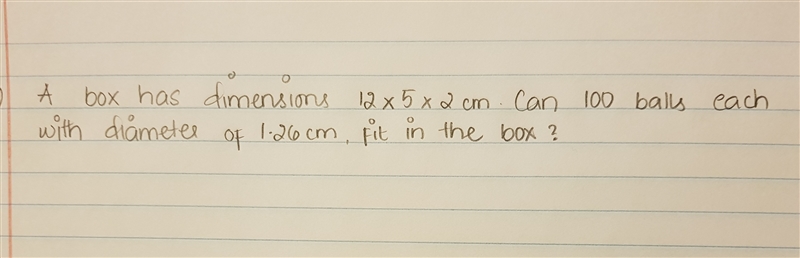 A box has dimensions 12 x 5 x 2 cm. Can 100 balls each
with diameter of 1.26 cm, fit in the box?